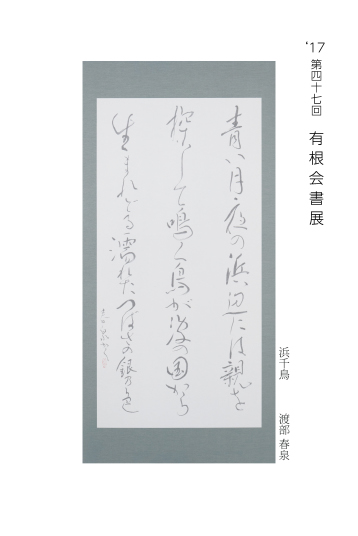 '17 第四十七回 有根会書展
青い月夜の浜辺には親を
探して鳴く鳥が波の国から
生まれでる濡れたつばさの銀の色
浜千鳥 渡部春泉